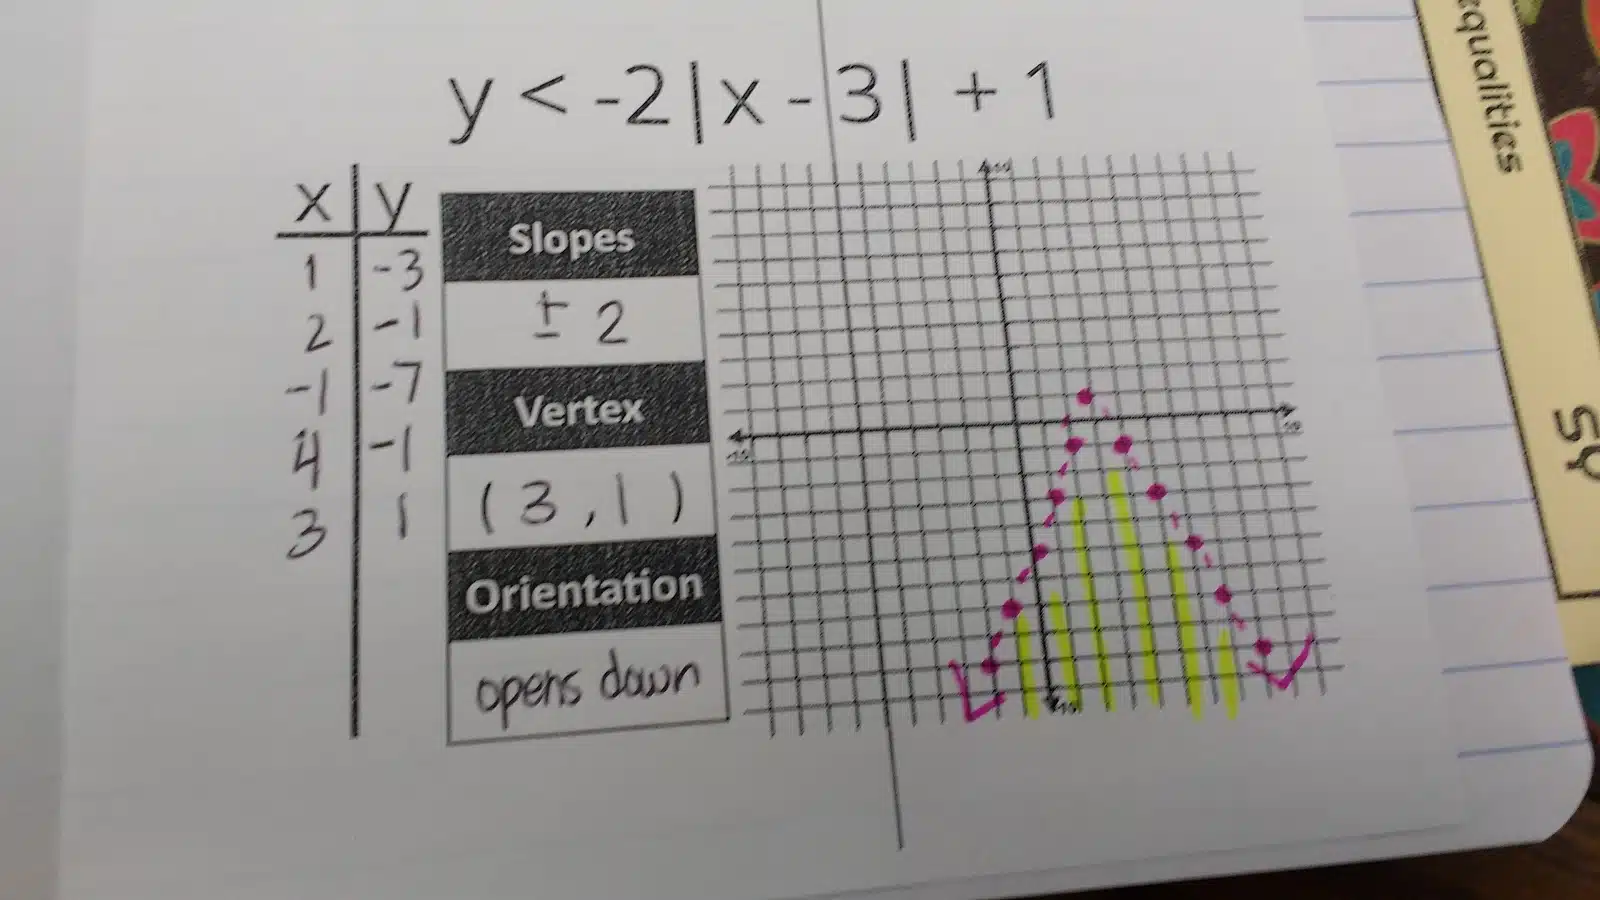 y < -2|x - 3| + 1
x y
1 -3
2 -1
-1 -7
4 -1
3 1
Slopes
± 2
Vertex
(3,1)
Orientation
opens down
10
-10
10
-10
equalities